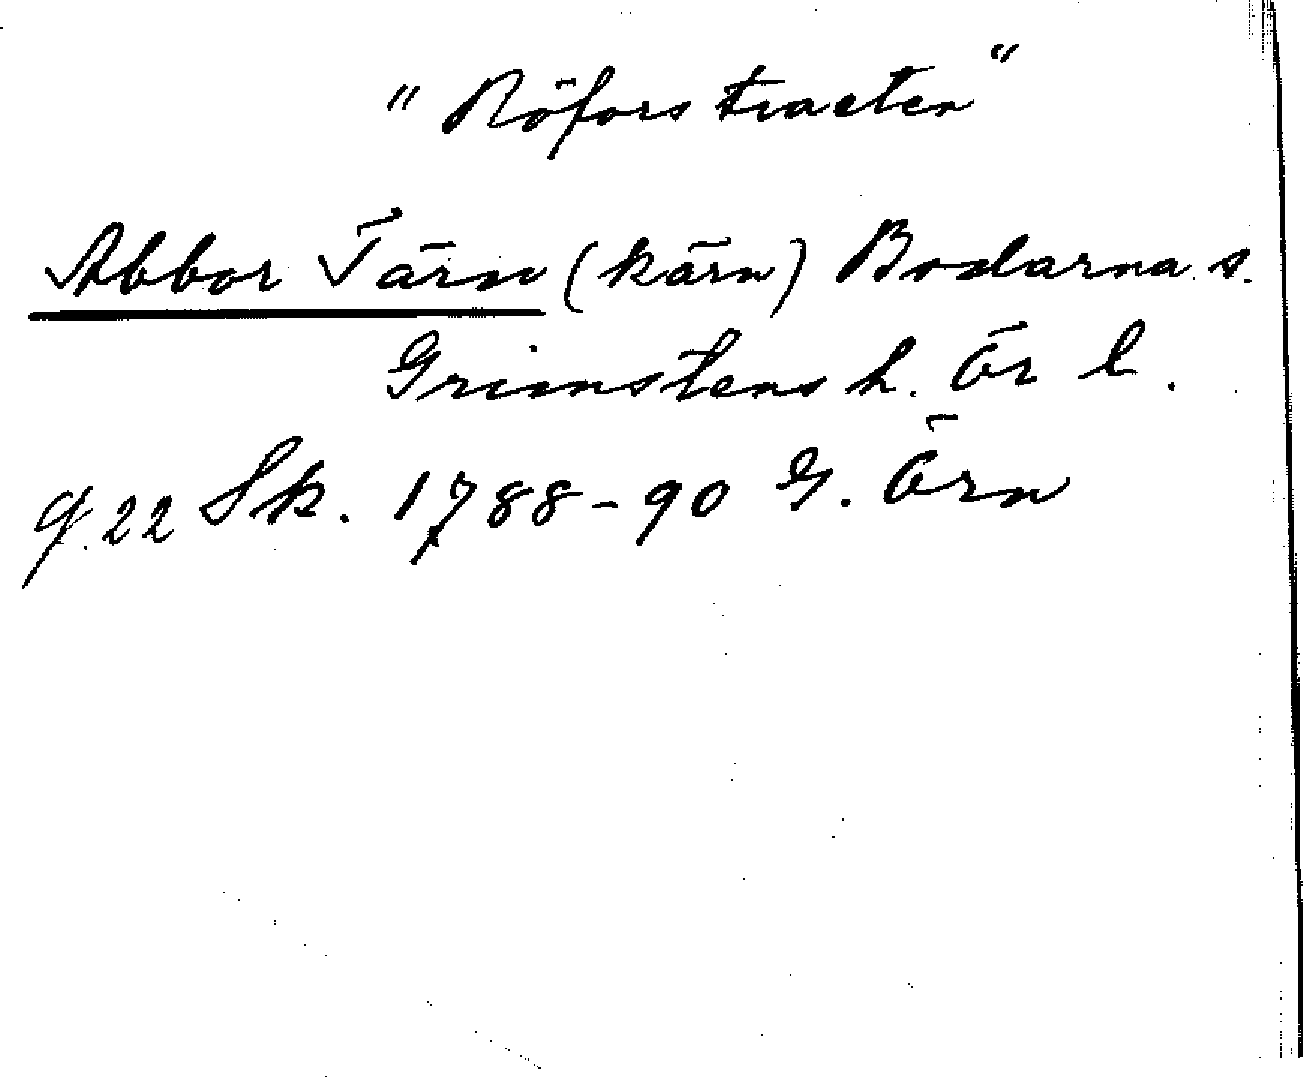 "Röfors tracten"
Abbor Tärn (kärn) Bodarna s.
Grimstens h. Ör l.
q. 22 Sk. 1788-90 G. Örn